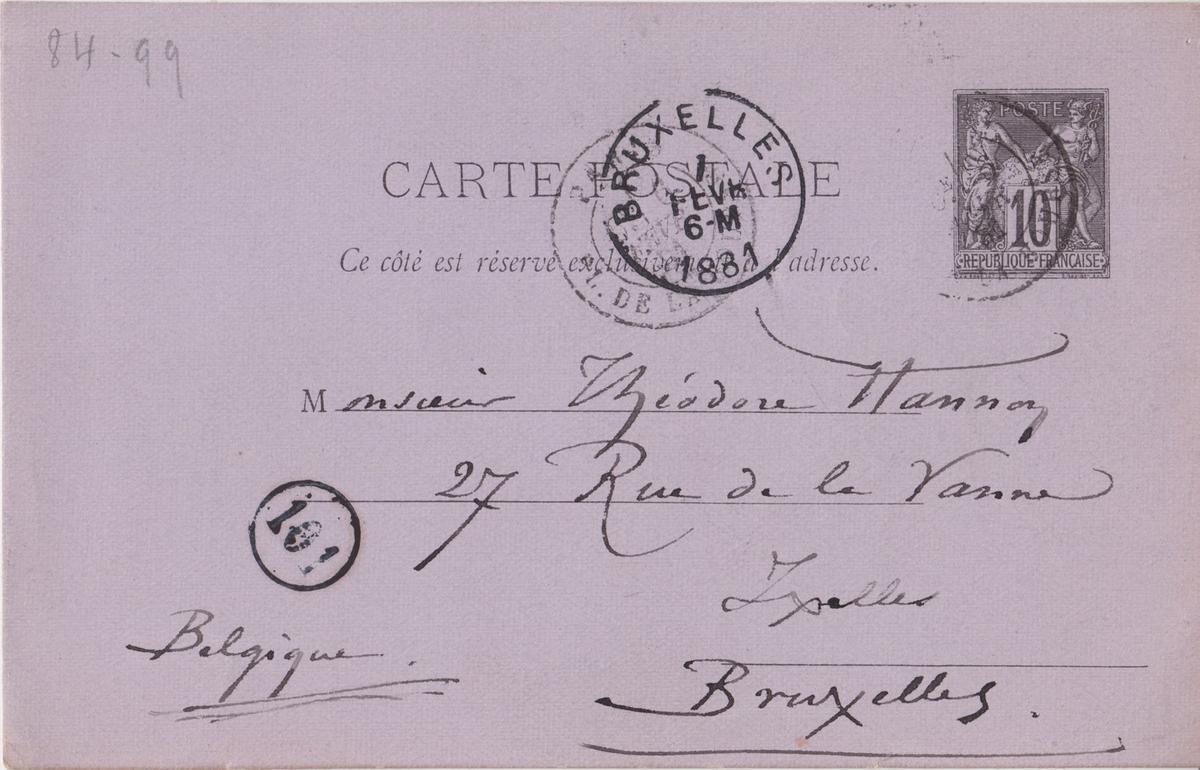 84-99
BRUXELLES
1
FEVR
6-M
1881
POSTE
10
REPUBLIQUE FRANÇAISE
CARTE POSTALE
Ce côté est réservé exclusivement à l'adresse.
DE LA
Monsieur Théodore Hannon
27 Rue de la Vanne
Ixelles
Belgique.
Bruxelles.